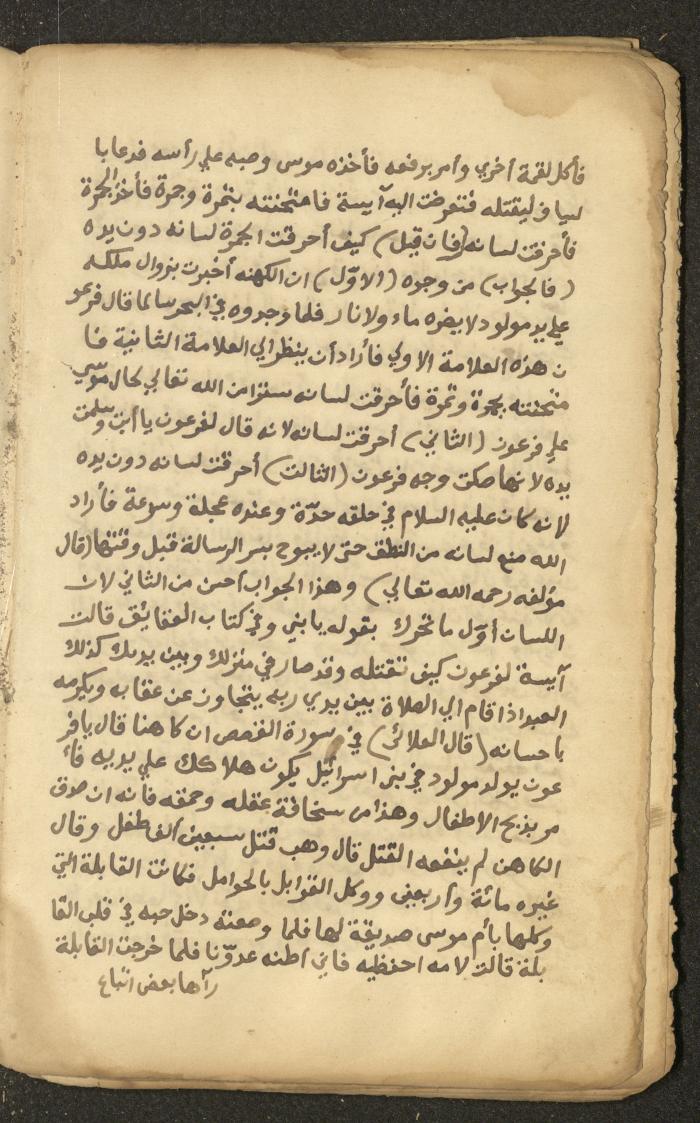 فأكل لقمة أخري وأمر برفعه فأخذه موسى وصبه علي رأسه فدعا با
لسياف ليقتله فتعرضت اليه آيسة فامتحنته بتمرة وجمرة فأخذ الجمرة
فأحرقت لسانه (فان قيل) كيف أحرقت الجمرة لسانه دون يده
(فالجواب) من وجوه (الاوّل) ان الكهنه أخبرت بزوال ملكه
علي يد مولود لا يضره ماء ولا نار فلما وجدوه في البحر سالما قال فرعو
ن هذه العلامة الاولي فأراد أن ينظر الي العلامة الثانية فا
متحنته بجمرة وتمرة فأحرقت لسانه سترا من الله تعالي لحال موسي
علي فرعون (الثاني) أحرقت لسانه لانه قال لفرعون يا أبت وسلمت
يده لانها صكت وجه فرعون (الثالث) أحرقت لسانه دون يده
لانه كان عليه السلام في خلقه حدّة وعنده عجلة وسرعة فأراد
الله منع لسانه من النطق حتى لا يبوح بسر الرسالة قبل وقتها (قال
مؤلفه رحمه الله تعالي) وهذا الجواب أحسن من الثاني لان
اللسان أوّل ما تحرك بقوله يا بني وفي كتاب العقائق قالت
آيسة لفرعون كيف تقتله وقد صار في منزلك وبين يديك كذلك
العبد اذا قام الي الصلاة بين يدي ربه يتجاوز عن عقابه ويكرمه
باحسانه (قال العلائى) في سورة القصص ان كاهنا قال يا فر
عون يولد مولود في بنى اسرائيل يكون هلاكك علي يديه فأ
مر بذبح الاطفال وهذا من سخافة عقله وحمقه فانه ان صدق
الكاهن لم ينفعه القتل قال وهب قتل سبعين ألف طفل وقال
غيره مائة وأربعين ووكل القوابل بالحوامل فكانت القابلة التي
وكلها بأم موسى صديقة لها فلما وضعته دخل حبه في قلب القا
بلة قالت لامه احفظيه فاني أظنه عدوّنا فلما خرجت القابلة
رآها بعض اتباع